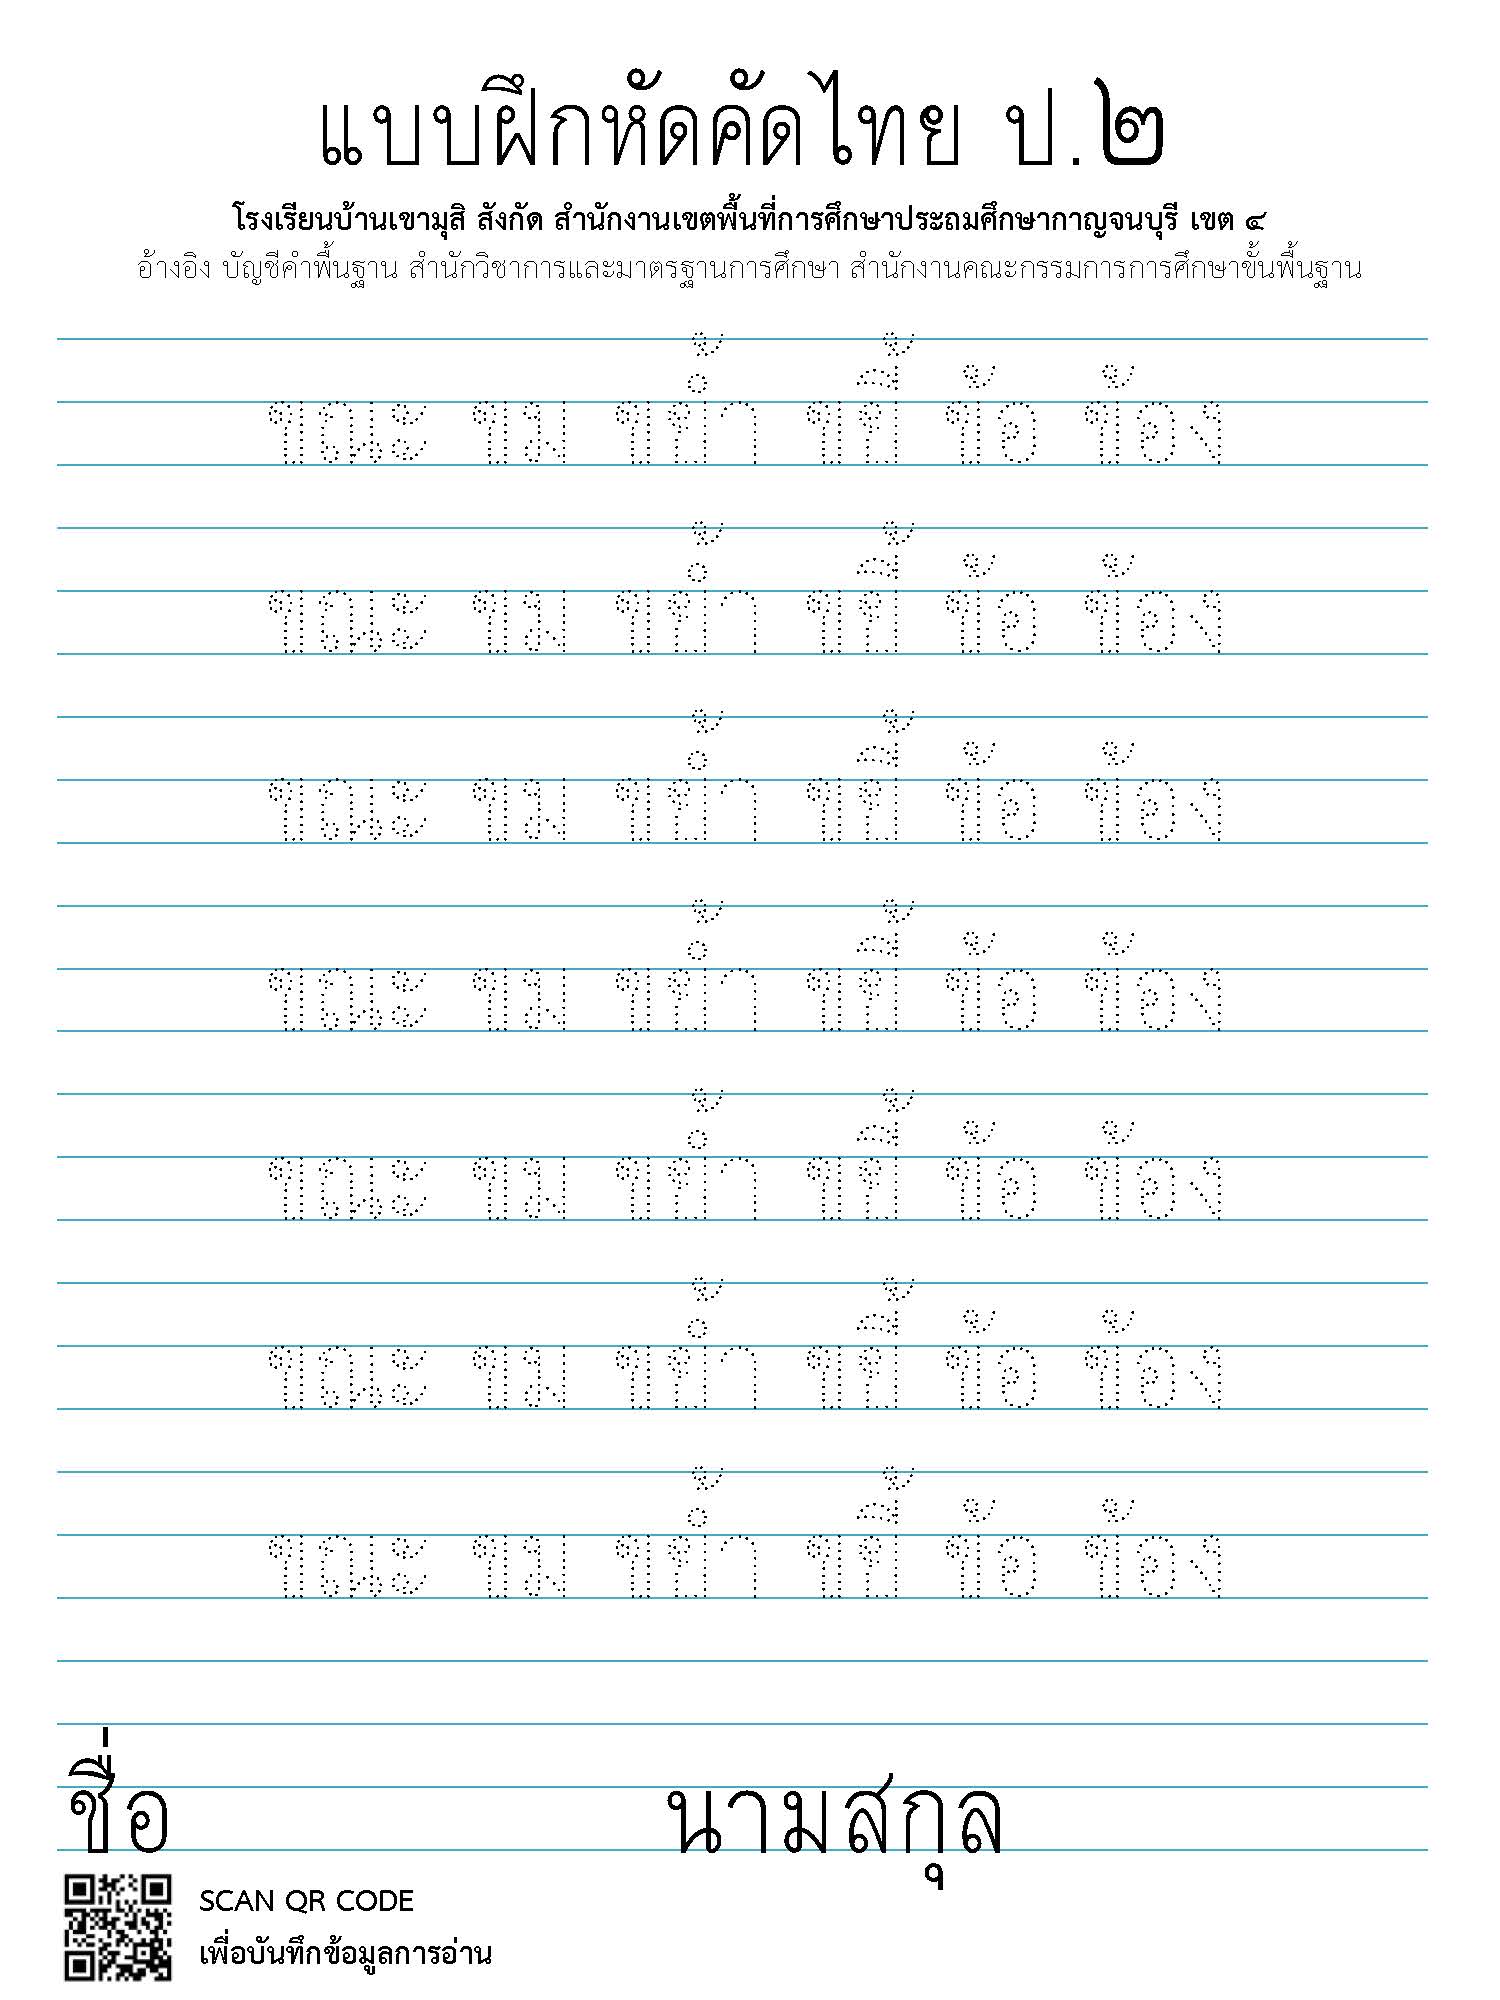 แบบฝึกหัดคัดไทย ป.๒
โรงเรียนบ้านเขามุสิ สังกัด สำนักงานเขตพื้นที่การศึกษาประถมศึกษากาญจนบุรี เขต ๔
อ้างอิง บัญชีคำพื้นฐาน สำนักวิชาการและมาตรฐานการศึกษา สำนักงานคณะกรรมการการศึกษาขั้นพื้นฐาน
ขณะ ขม ขย้ำ ขยี้ ข้อ ข้อง
ขณะ ขม ขย้ำ ขยี้ ข้อ ข้อง
ขณะ ขม ขย้ำ ขยี้ ข้อ ข้อง
ขณะ ขม ขย้ำ ขยี้ ข้อ ข้อง
ขณะ ขม ขย้ำ ขยี้ ข้อ ข้อง
ขณะ ขม ขย้ำ ขยี้ ข้อ ข้อง
ขณะ ขม ขย้ำ ขยี้ ข้อ ข้อง
ชื่อ นามสกุล
SCAN QR CODE
เพื่อบันทึกข้อมูลการอ่าน